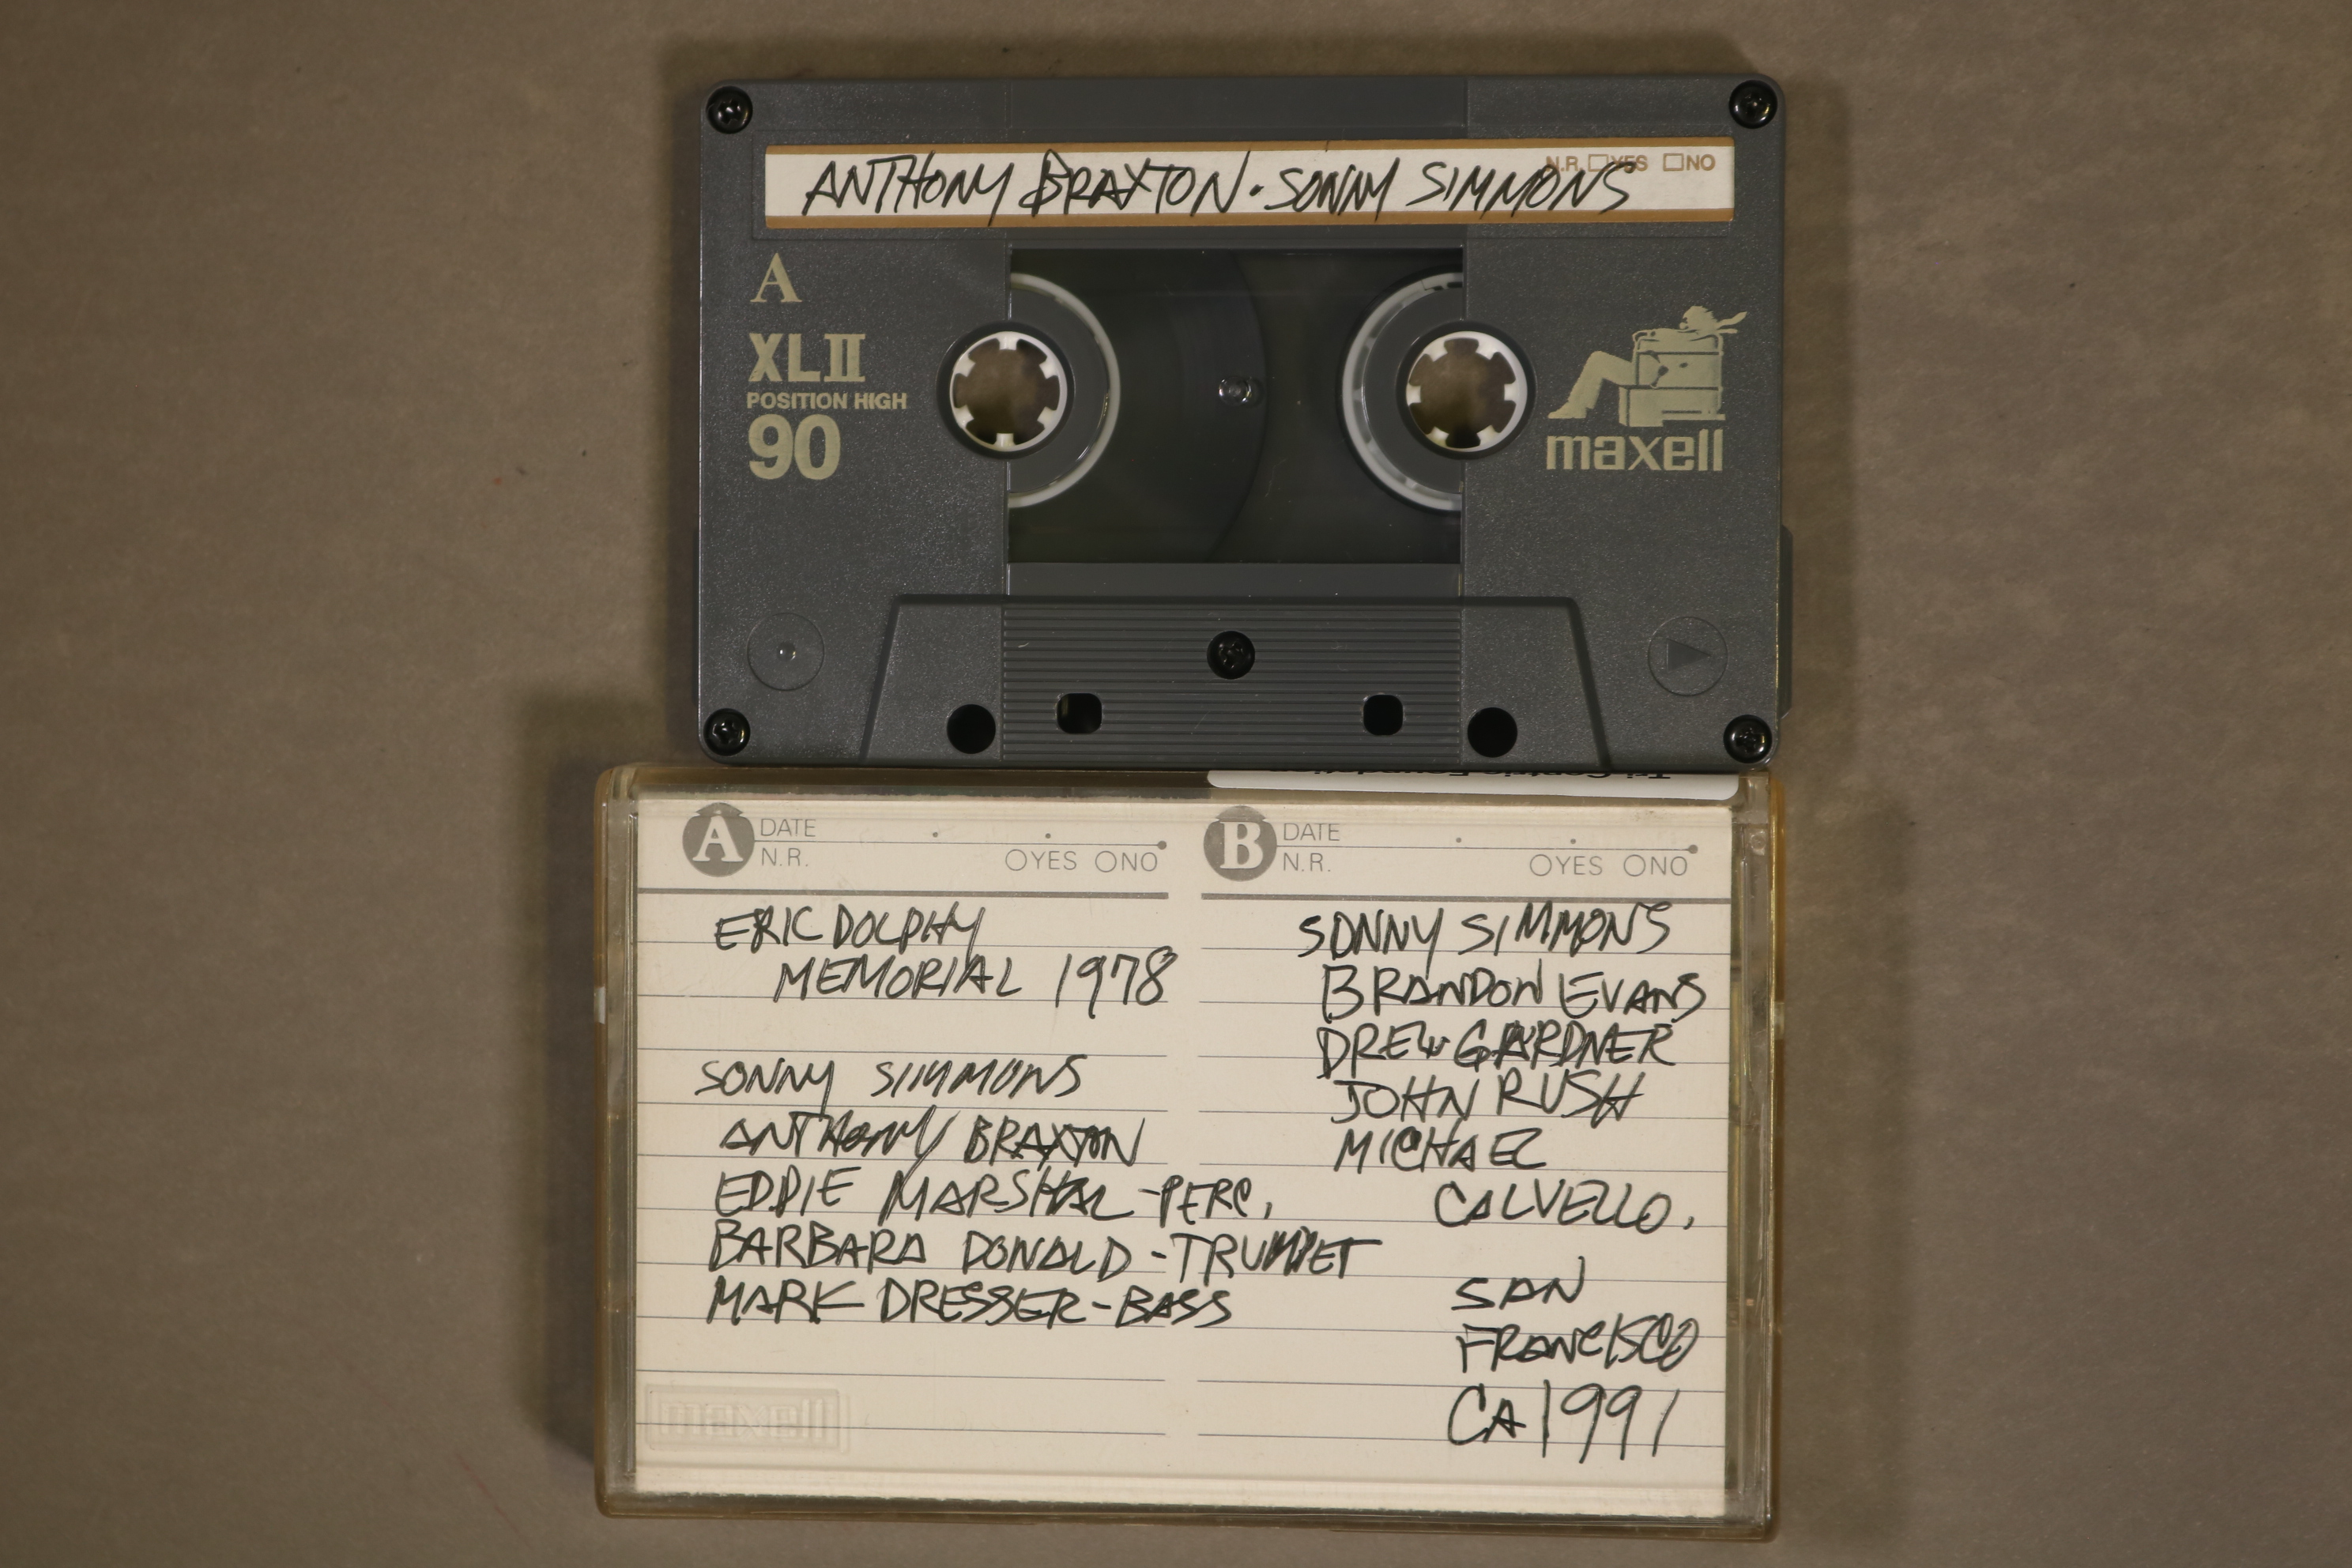 ANTHONY BRAXTON • SONNY SIMMONS
N.R. YES NO
A
XLII
POSITION HIGH
90
maxell
Tri-Centric Foundation
A DATE
N.R. YES NO
ERIC DOLPHY
MEMORIAL 1978
SONNY SIMMONS
ANTHONY BRAXTON
EDDIE MARSHAL - PERC,
BARBARA DONALD - TRUMPET
MARK DRESSER - BASS
maxell
B DATE
N.R. YES NO
SONNY SIMMONS
BRANDON EVANS
DREW GARDNER
JOHN RUSH
MICHAEL
CALVELLO,
SAN
FRANCISCO
CA 1991